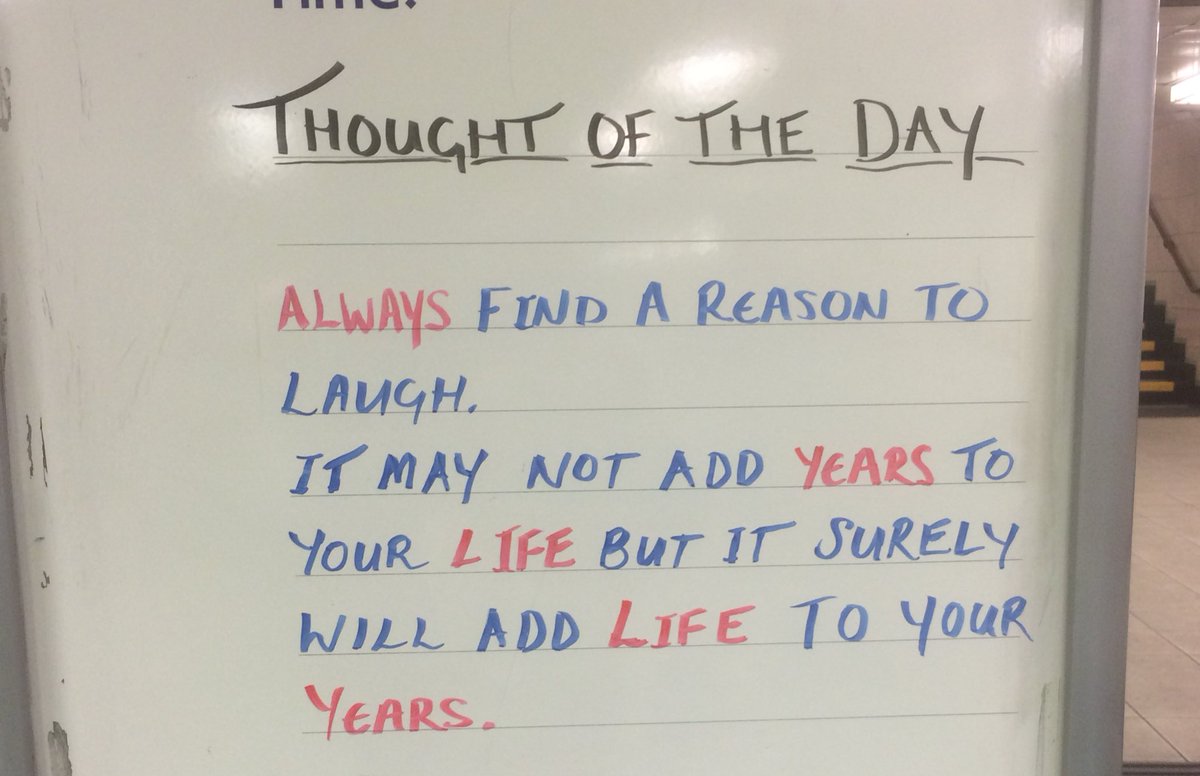 THOUGHT OF THE DAY
ALWAYS FIND A REASON TO
LAUGH.
IT MAY NOT ADD YEARS TO
YOUR LIFE BUT IT SURELY
WILL ADD LIFE TO YOUR
YEARS.